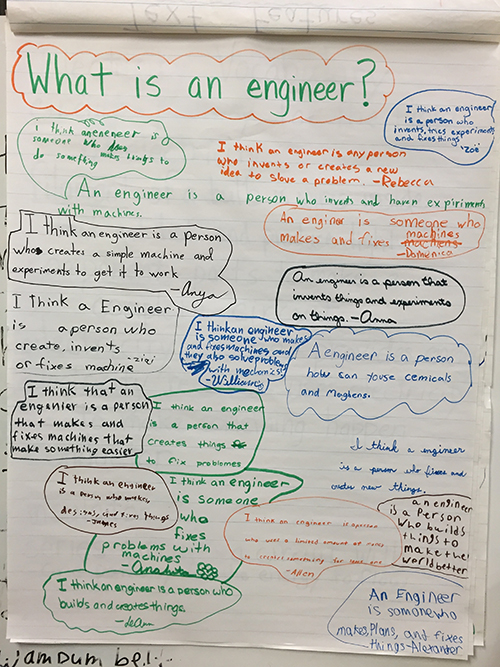 Text Features
What is an engineer?
I think an engineer
is a person who
invents, tries experiments
and fixes things
Zoë
I think
someone who
makes things to
do something
I think an engineer is any person
who invents or creates a new
idea to slave a problem. -Rebecca
An engineer is a person who invents and haven expiriments
with machines.
An enginer is someone who
makes and fixes machines
-Domenica
I think an engineer is a person
who creates a simple machine and
experiments to get it to work
-Anya
An enginer is a person that
invents things and experiments
on things. -Anna
I think a Engineer
is a person who
create, invents
or fixes machine
I think an engineer
is someone who makes
and fixes machines and
they also solve problem
with mechanics
-William
A engineer is a person
how can youse cemicals
and
I think that an
engenier is a person
that makes and
fixes machines that
make something easier
I think an engineer
is a person that
creates things
to fix problemes
I think a engineer
is a person who fixes and
new things.
I think an engineer
is a person who
designs, and fixes things
-Jaques
I think an engineer
is someone
who
fixes
problems with
machines
I think an engineer is a person
who uses a limited amount of
to create something for
-Allen
an engineer
is a Person
who builds
things to
make the
world better
I think an engineer is a person who
builds and creates things.
An Engineer
is somone who
makes, Plans, and fixes
things -Alexander